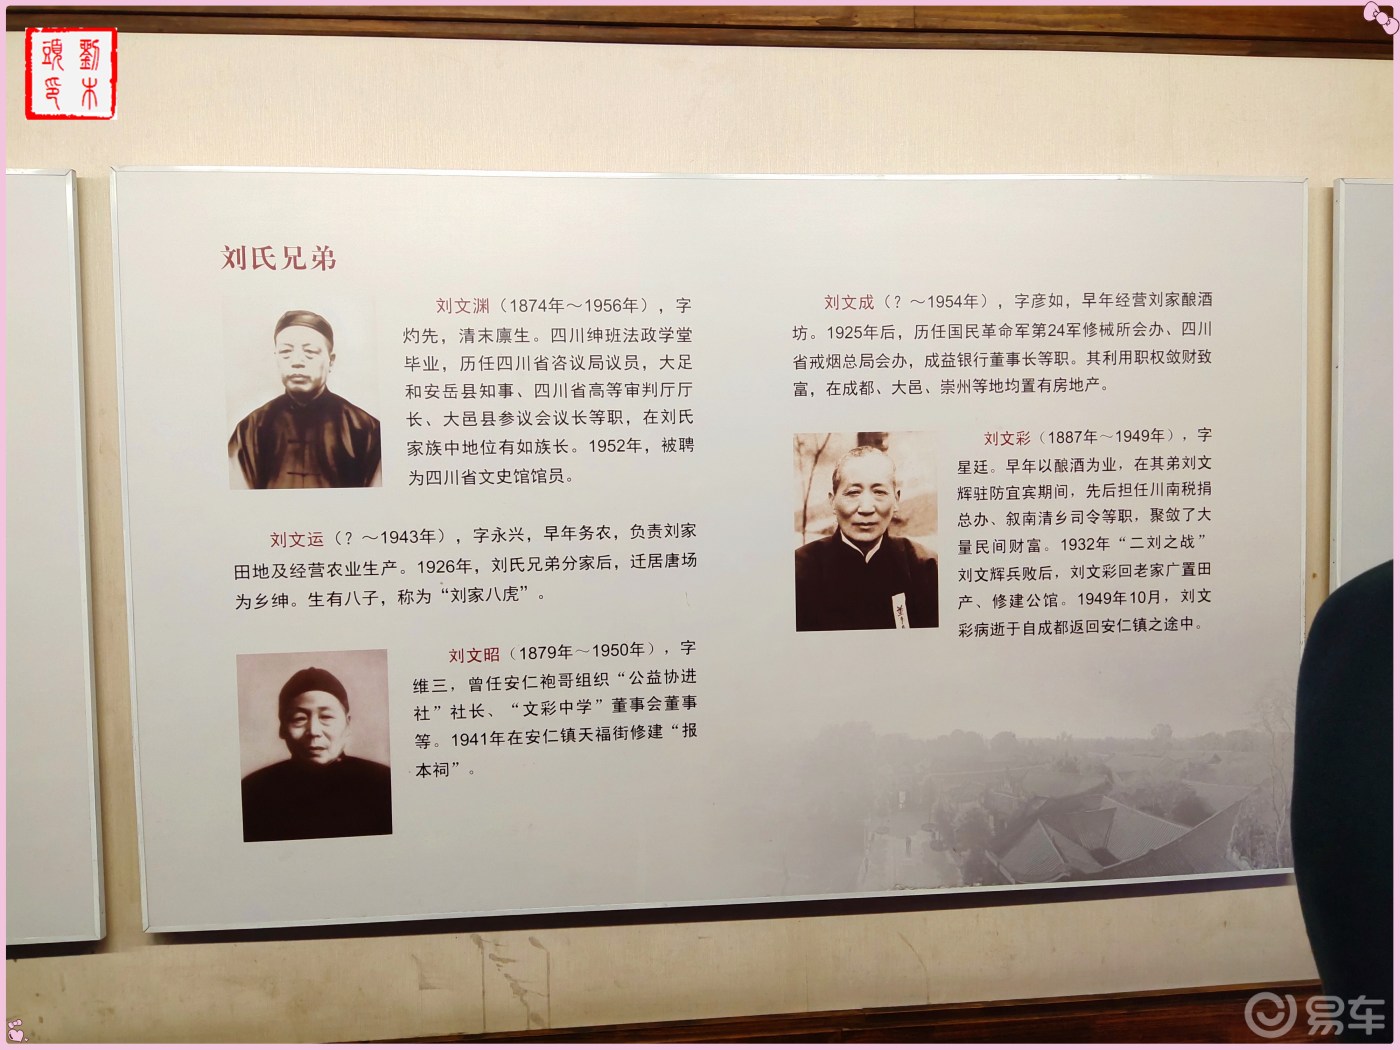 劉木
頭印
刘氏兄弟
刘文渊（1874年～1956年），字
灼先，清末廪生。四川绅班法政学堂
毕业，历任四川省咨议局议员，大足
和安岳县知事、四川省高等审判厅厅
长、大邑县参议会议长等职，在刘氏
家族中地位有如族长。1952年，被聘
为四川省文史馆馆员。
刘文运（？～1943年），字永兴，早年务农，负责刘家
田地及经营农业生产。1926年，刘氏兄弟分家后，迁居唐场
为乡绅。生有八子，称为“刘家八虎”。
刘文昭（1879年～1950年），字
维三，曾任安仁袍哥组织“公益协进
社”社长、“文彩中学”董事会董事
等。1941年在安仁镇天福街修建“报
本祠”。
刘文成（？～1954年），字彦如，早年经营刘家酿酒
坊。1925年后，历任国民革命军第24军修械所会办、四川
省戒烟总局会办，成益银行董事长等职。其利用职权敛财致
富，在成都、大邑、崇州等地均置有房地产。
刘文彩（1887年～1949年），字
星廷。早年以酿酒为业，在其弟刘文
辉驻防宜宾期间，先后担任川南税捐
总办、叙南清乡司令等职，聚敛了大
量民间财富。1932年“二刘之战”
刘文辉兵败后，刘文彩回老家广置田
产、修建公馆。1949年10月，刘文
彩病逝于自成都返回安仁镇之途中。
易车